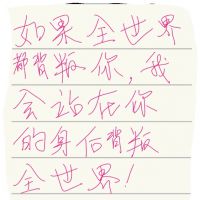 如果全世界
都背叛你，我
会站在你
的身后背叛
全世界！